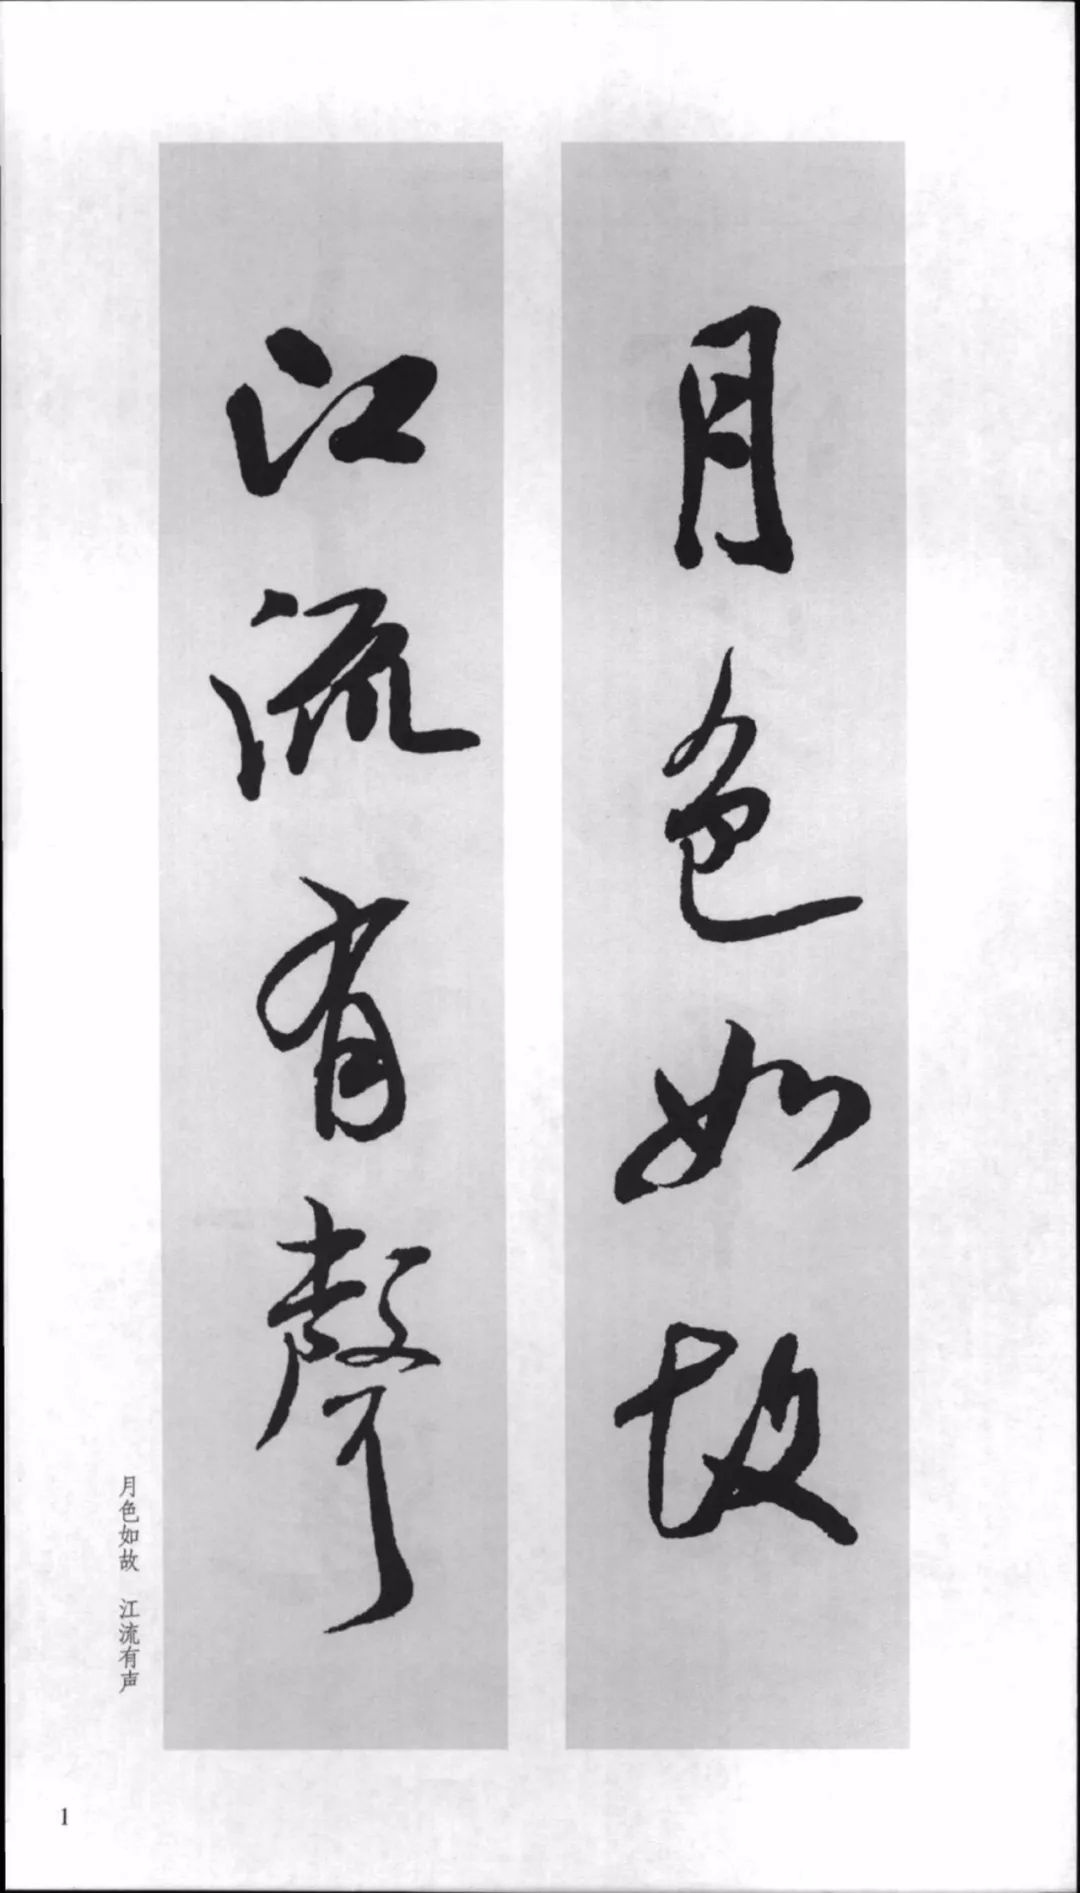 月色如故
江流有聲
月色如故 江流有声
1